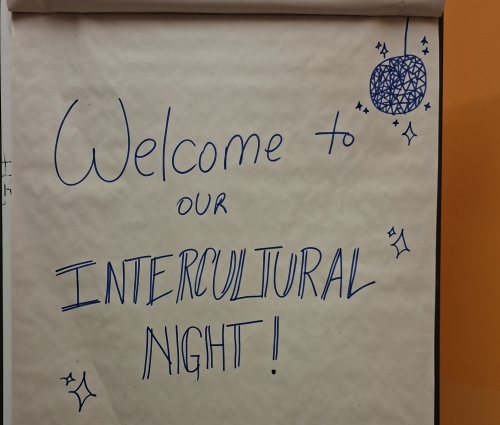 Welcome to
OUR
INTERCULTURAL
NIGHT!